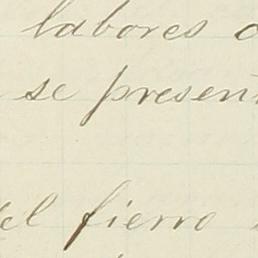 labores
se presen
el fierro